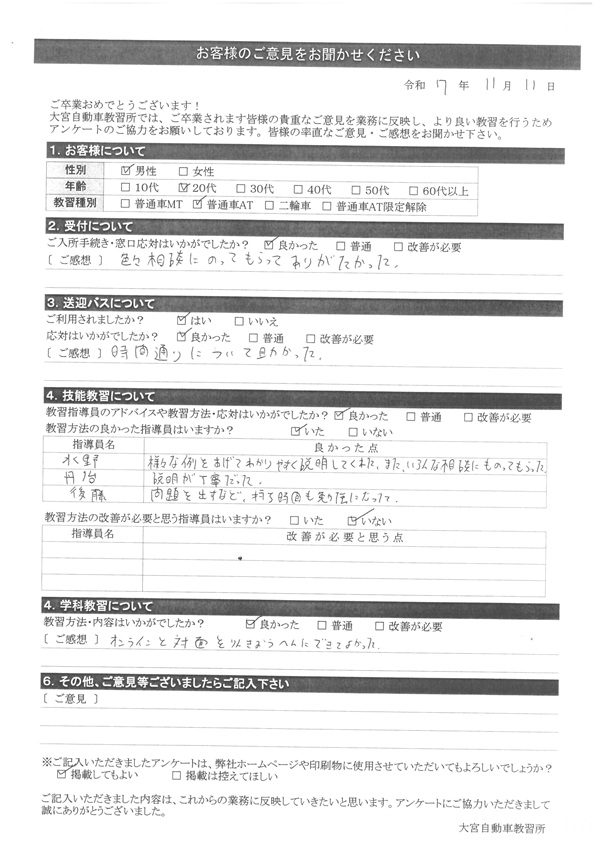 お客様のご意見をお聞かせください
令和 7 年 11 月 11 日
ご卒業おめでとうございます！
大宮自動車教習所では、ご卒業されます皆様の貴重なご意見を業務に反映し、より良い教習を行うため
アンケートのご協力をお願いしております。皆様の率直なご意見・ご感想をお聞かせ下さい。
1. お客様について
性別 ☑男性 □女性
年齢 □10代 ☑20代 □30代 □40代 □50代 □60代以上
教習種別 □普通車MT ☑普通車AT □二輪車 □普通車AT限定解除
2. 受付について
ご入所手続き・窓口応対はいかがでしたか？ ☑良かった □普通 □改善が必要
〔ご感想〕 色々相談にのってもらってありがたかった。
3. 送迎バスについて
ご利用されましたか？ ☑はい □いいえ
応対はいかがでしたか？ ☑良かった □普通 □改善が必要
〔ご感想〕 時間通りについて助かった。
4. 技能教習について
教習指導員のアドバイスや教習方法・応対はいかがでしたか？ ☑良かった □普通 □改善が必要
教習方法の良かった指導員はいますか？ ☑いた □いない
指導員名 良かった点
水野 様々な例をあげてわかりやすく説明してくれた。また、いろんな相談にものってもらった
丹治 説明が丁寧だった。
後藤 問題を出すなど、待ち時間も有になった。
教習方法の改善が必要と思う指導員はいますか？ □いた ☑いない
指導員名 改善が必要と思う点
4. 学科教習について
教習方法・内容はいかがでしたか？ ☑良かった □普通 □改善が必要
〔ご感想〕 オンラインと対面をりんきおうへんにできてよかった。
6. その他、ご意見等ございましたらご記入下さい
〔ご意見〕
※ご記入いただきましたアンケートは、弊社ホームページや印刷物に使用させていただいてもよろしいでしょうか？
☑掲載してもよい □掲載は控えてほしい
ご記入いただきました内容は、これからの業務に反映していきたいと思います。アンケートにご協力いただきまして
誠にありがとうございました。
大宮自動車教習所